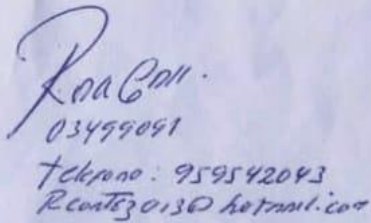 03499091
Telefono: 959542043
Rcortez013@hotmail.com